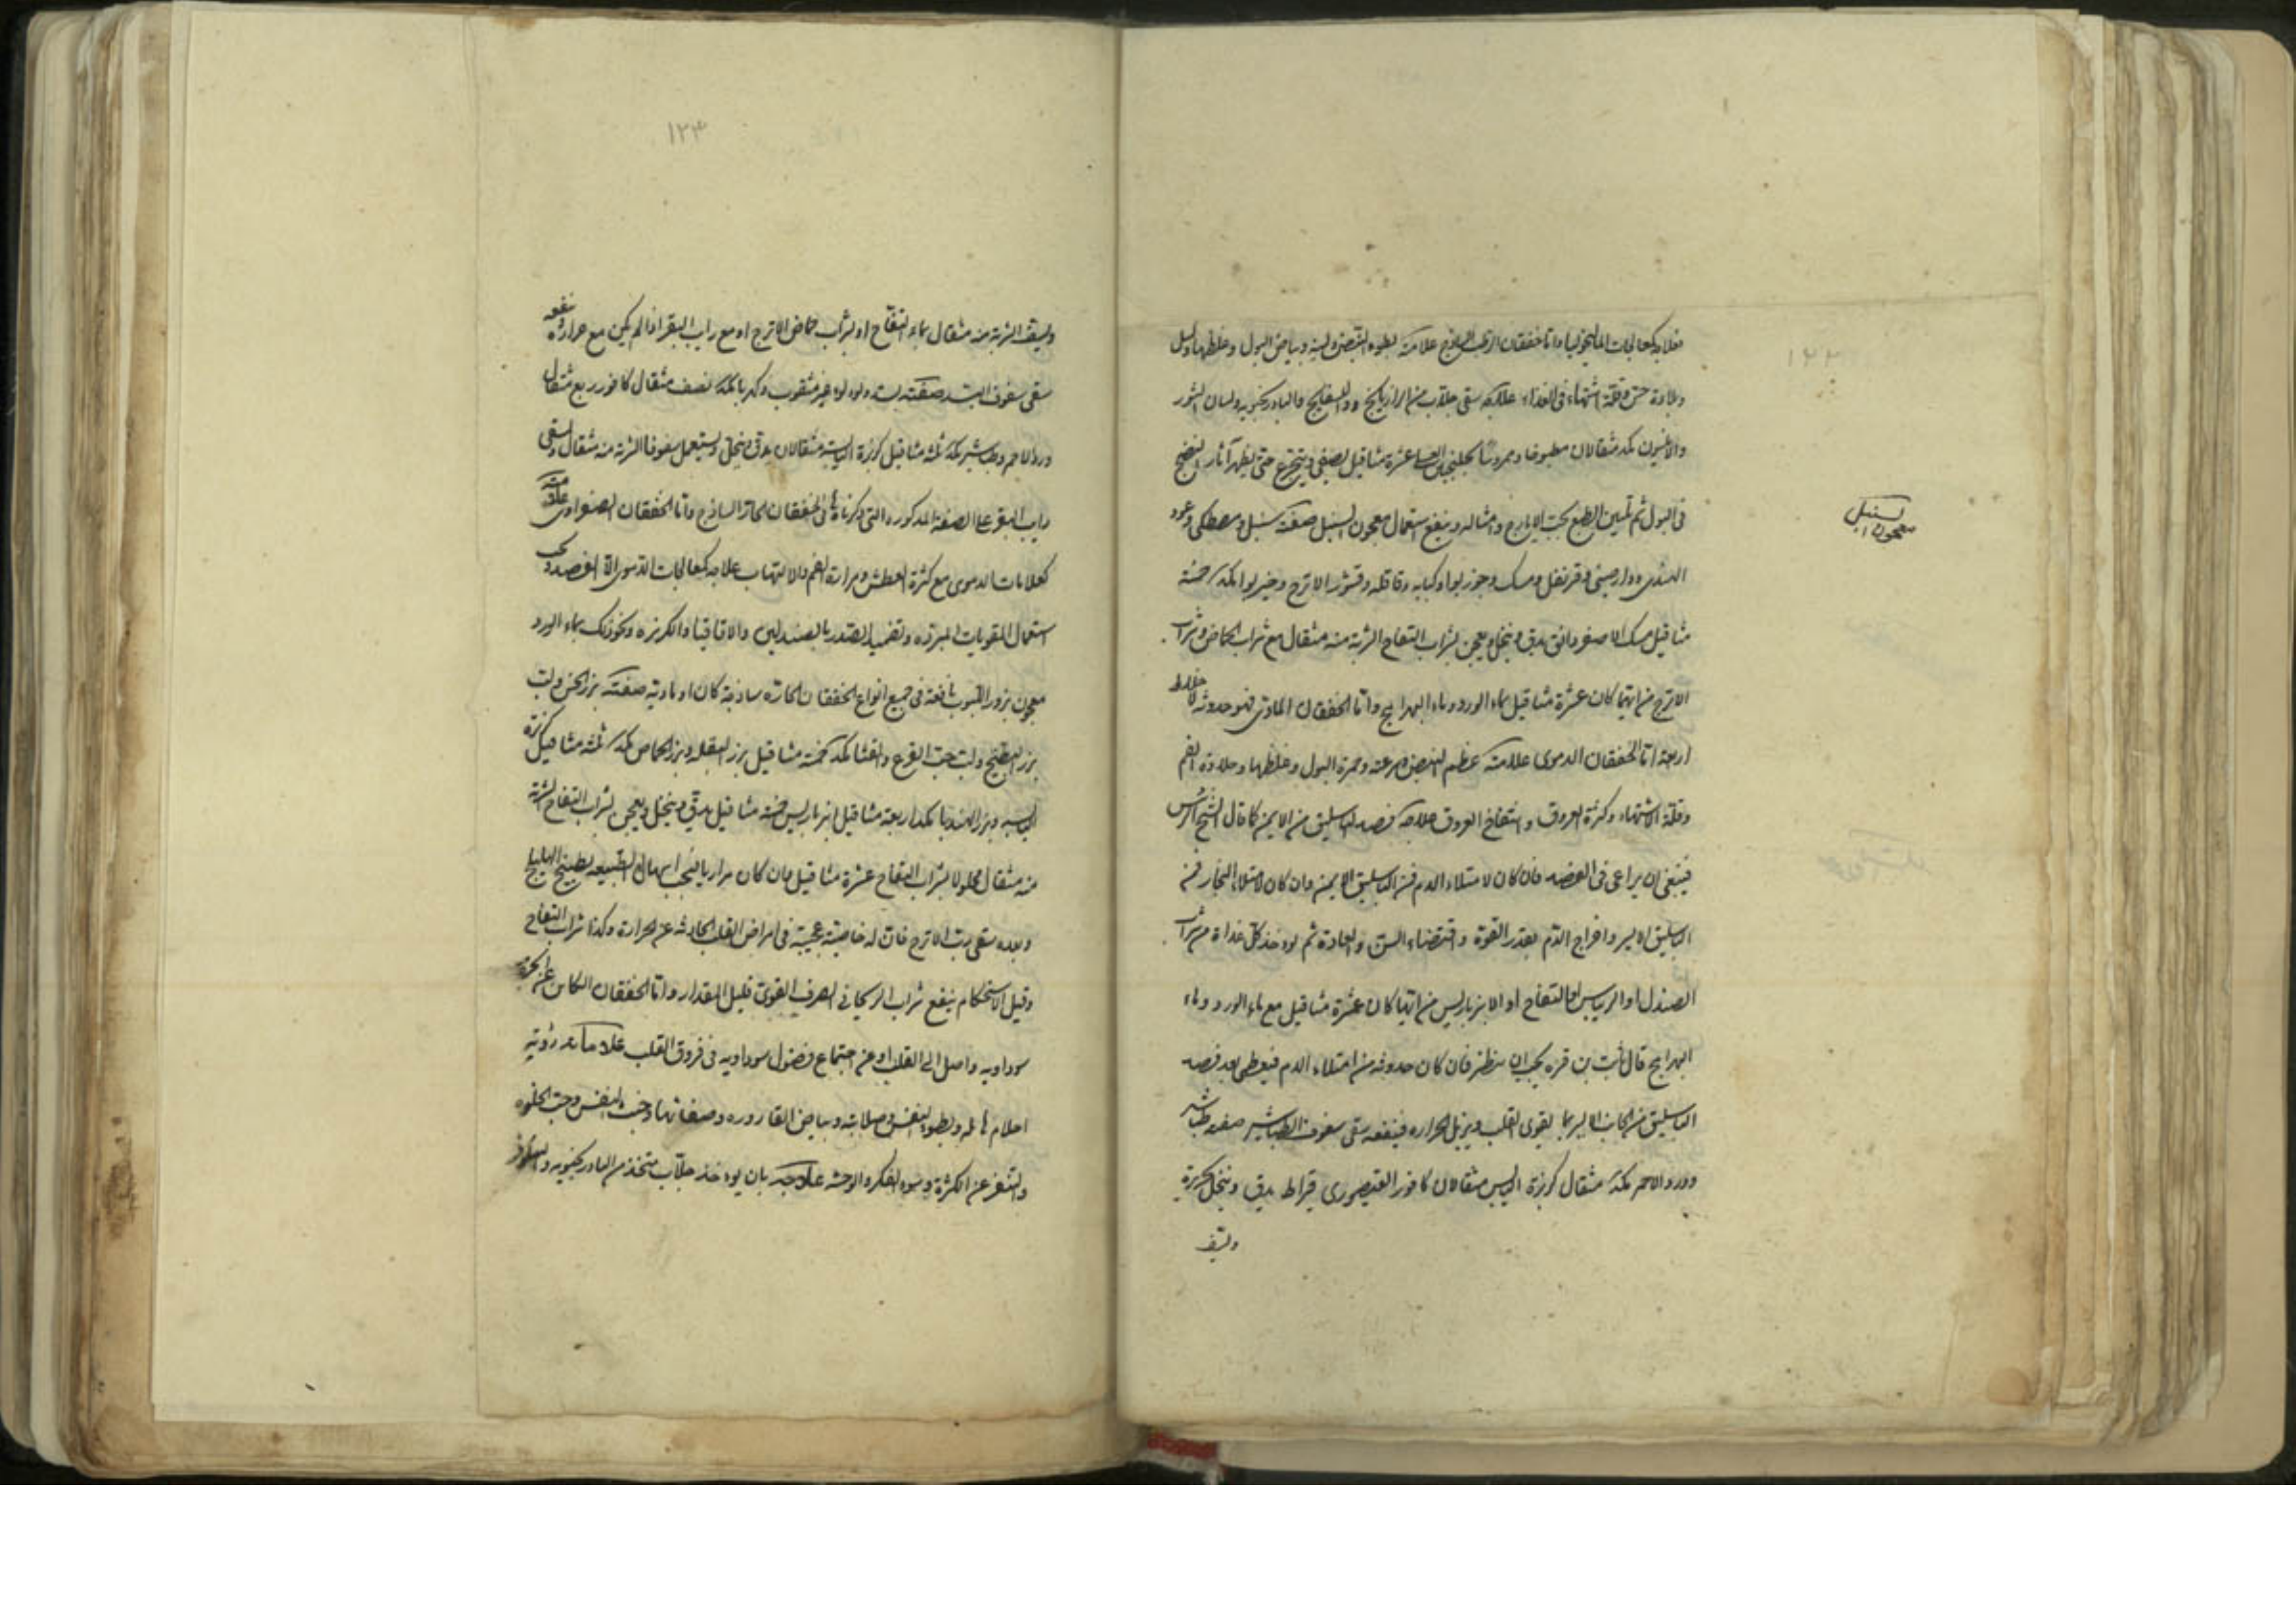 ۱۲۳
فعلاجه كمعالجات الماليخوليا واما خفقان الرطب الساذج علامته بطوء النبض ولينه وبياض البول وغلظها وكسل
وبلادة حس وقلة اشتهاء فى الغذاء علاجه سقى جلاب من الرازيانج والبسفايج والبادرنجبويه ولسان الثور
والافتيمون لكل مثقالان مطبوخا وممروسا بجلنجبين العسل عشرة مثاقيل يصفى ويتجرع حتى يظهر آثار النضج
فى البول ثم تليين الطبع بحب الايارج وامثاله وينفع استعمال معجون السنبل صفته سنبل ومصطكى وعود
معجون السنبل
الهندى ودارصينى وقرنفل ومسك وجوزبوا وكبابه وقاقله وقشور الاترج وخيربوا لكل خمسة
مثاقيل مسك الاصفر دانق يدق وينخل ويعجن بشراب التفاح الشربة منه مثقال مع شراب الحماض وشراب
الاترج من ايهما كان عشرة مثاقيل بماء الورد وماء البهرامج واما الخفقان المادى فهو حدوثه لاخلاط
اربعة اما الخفقان الدموى علامته عظم النبض وسرعته وحمرة البول وغلظها وحلاوة الفم
وقلة الاشتهاء وكثرة العروق وانتفاخ العروق علاجه فصد الباسليق من الايمن كما قال الشيخ الرئيس
فينبغى ان يراعى فى الفصد فان كان لامتلاء الدم فمن الباسليق الايمن وان كان لامتلاء البخار فمن
الباسليق الايسر واخراج الدم بقدر القوة واقتضاء السن والعادة ثم يوخذ كل غداة من شراب
الصندل او الريباس او التفاح او الانبرباريس من ايها كان عشرة مثاقيل مع ماء الورد وماء
البهرامج قال ثابت بن قره يجب ان ينظر فان كان حدوثه من امتلاء الدم فيعطى بعد فصد
الباسليق من الجانب الايسر بما يقوى القلب ويزيل الحراره فينفعه سقى سفوف الطباشير صفته طباشير
وورد الاحمر لكل مثقال كزبرة اليابس مثقالان كافور القيصورى قيراط يدق وينخل بحريرة
ويسف
۱۲۴
ويسف الشربة منه مثقال بماء التفاح او بشراب حماض الاترج او مع رايب البقر اذا لم يكن مع حرارة وينفعه
سقى سفوف البسد صفته بسد ولولوء غير مثقوب وكهربا لكل نصف مثقال كافور ربع مثقال
ورد الاحمر وطباشير لكل ثلثه مثاقيل كزبرة اليابسة مثقالان يدق وينخل ويستعمل سفوفا الشربة منه مثقال وسقى
رايب البقر على الصفة المذكوره التى ذكرناها فى الخفقان الحار الساذج واما الخفقان الصفراوى علامته
كعلامات الدموى مع كثرة العطش ومرارة الفم والالتهاب علاجه كمعالجات الدموى الا الفصد ويجب
استعمال المقويات المبرده وتضميد الصدر بالصندلين والاقاقيا والكزبره ونحو ذلك بماء الورد
معجون بزور الحبوب نافعة فى جميع انواع الخفقان الحاره ساذجة كان او مادية صفته بزر الخس ولب
بزر البطيخ ولب حب القرع والقثا لكل خمسة مثاقيل بزر البقله وبزر الحماض لكل ثلثه مثاقيل كزبرة
اليابسه وبزر الهندبا لكل اربعة مثاقيل انبرباريس خمسة مثاقيل يدق وينخل ويعجن بشراب التفاح الشربة
منه مثقال محلولا بشراب التفاح عشرة مثاقيل وان كان مراريا فيجب اسهال الطبيعه بطبيخ الهليلج
وبعده سقى رب الاترج فان له خاصية عجيبة فى امراض القلب الحادثه عن الحرارة وكذا شراب التفاح
وقبل الاستحكام ينفع شراب الريحانى الصرف القوى قليل المقدار واما الخفقان الكاين عن ابخرة
سوداويه واصل الى القلب او عن اجتماع فضول سوداويه فى عروق القلب علاماته رؤية
احلام هائله وبطوء النبض وصلابته وبياض القاروره وصفائها وخبث النفس وحب الخلوه
والتنفر عن الكثرة وسوء الفكر والوحشه علاجه بان يوخذ جلاب متخذ من البادرنجبويه والنيلوفر